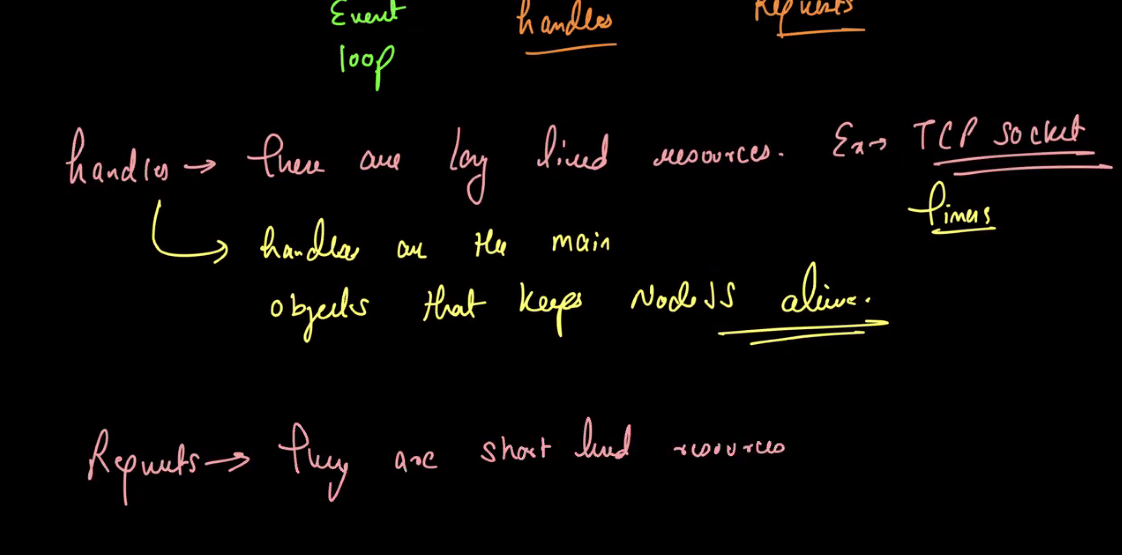 Event handles Requests
loop
handles → there are long lived resources. Ex → TCP socket
timers
handles are the main
objects that keeps NodeJS alive.
Requests → they are short lived resources